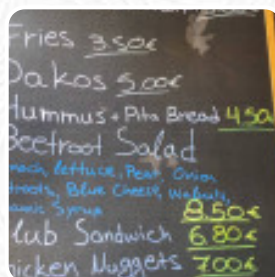 Fries 3.50€
Dakos 5.00€
Hummus + Pita Bread 4.50
Beetroot Salad
lettuce, Pear, Onion
Blue Cheese, Walnuts,
Syrup 8.50€
Club Sandwich 6.80€
Chicken Nuggets 7.00€